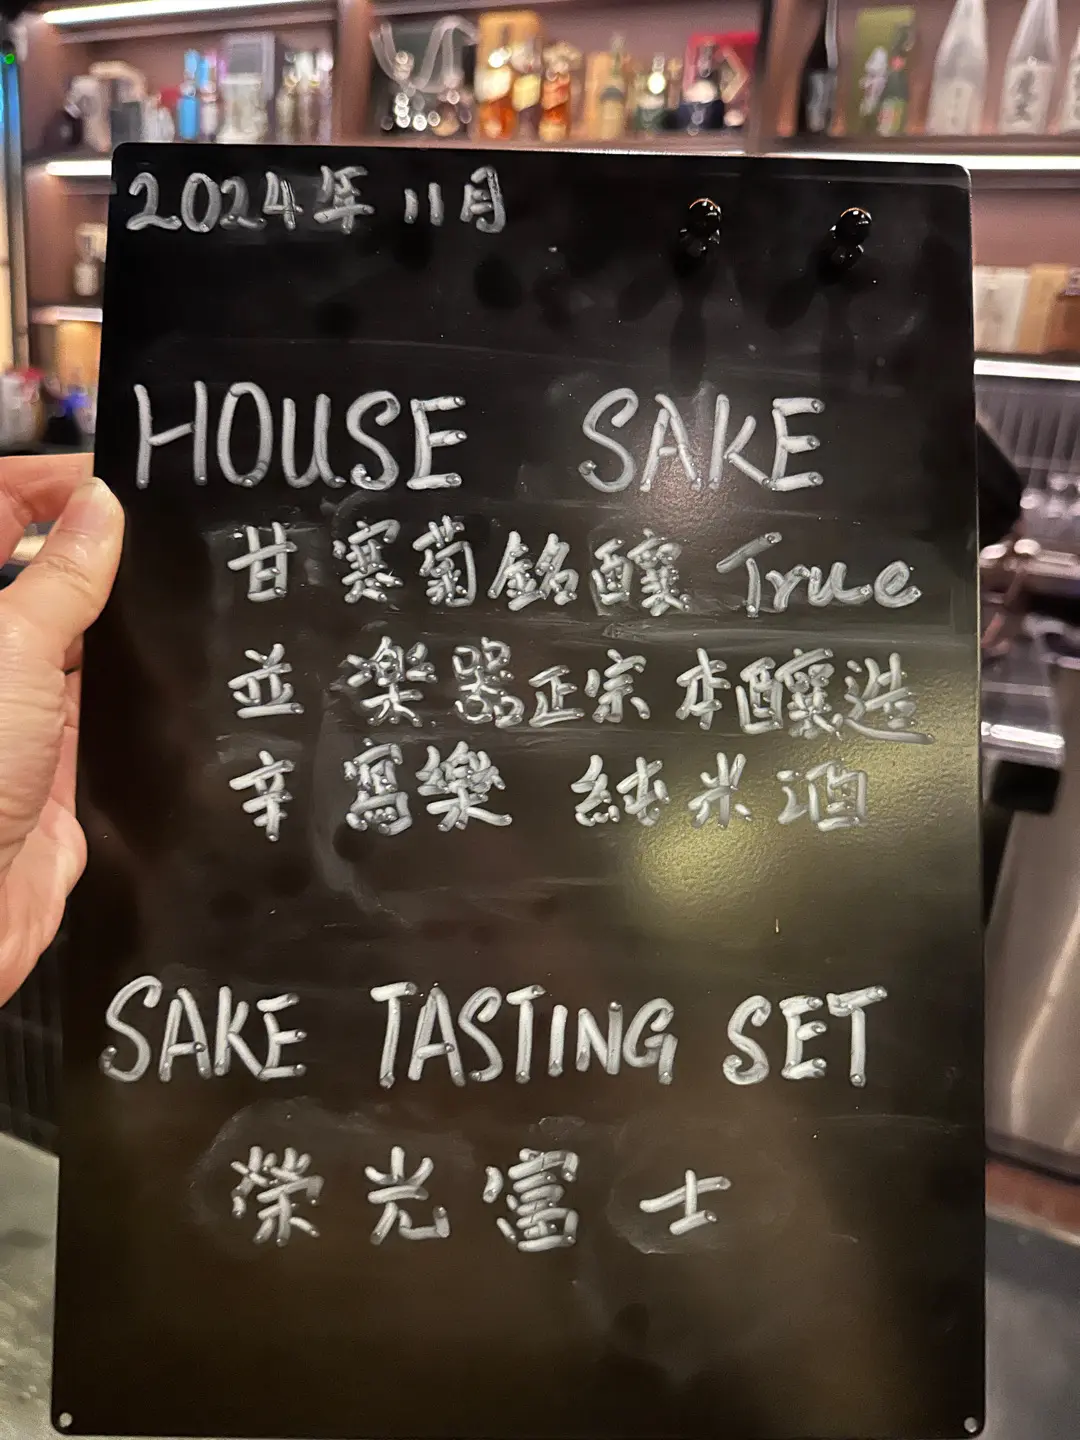 2024年 11月
HOUSE SAKE
甘 寒菊銘釀 True
並 楽器正宗 本釀造
辛 寫樂 純米酒
SAKE TASTING SET
榮光富士